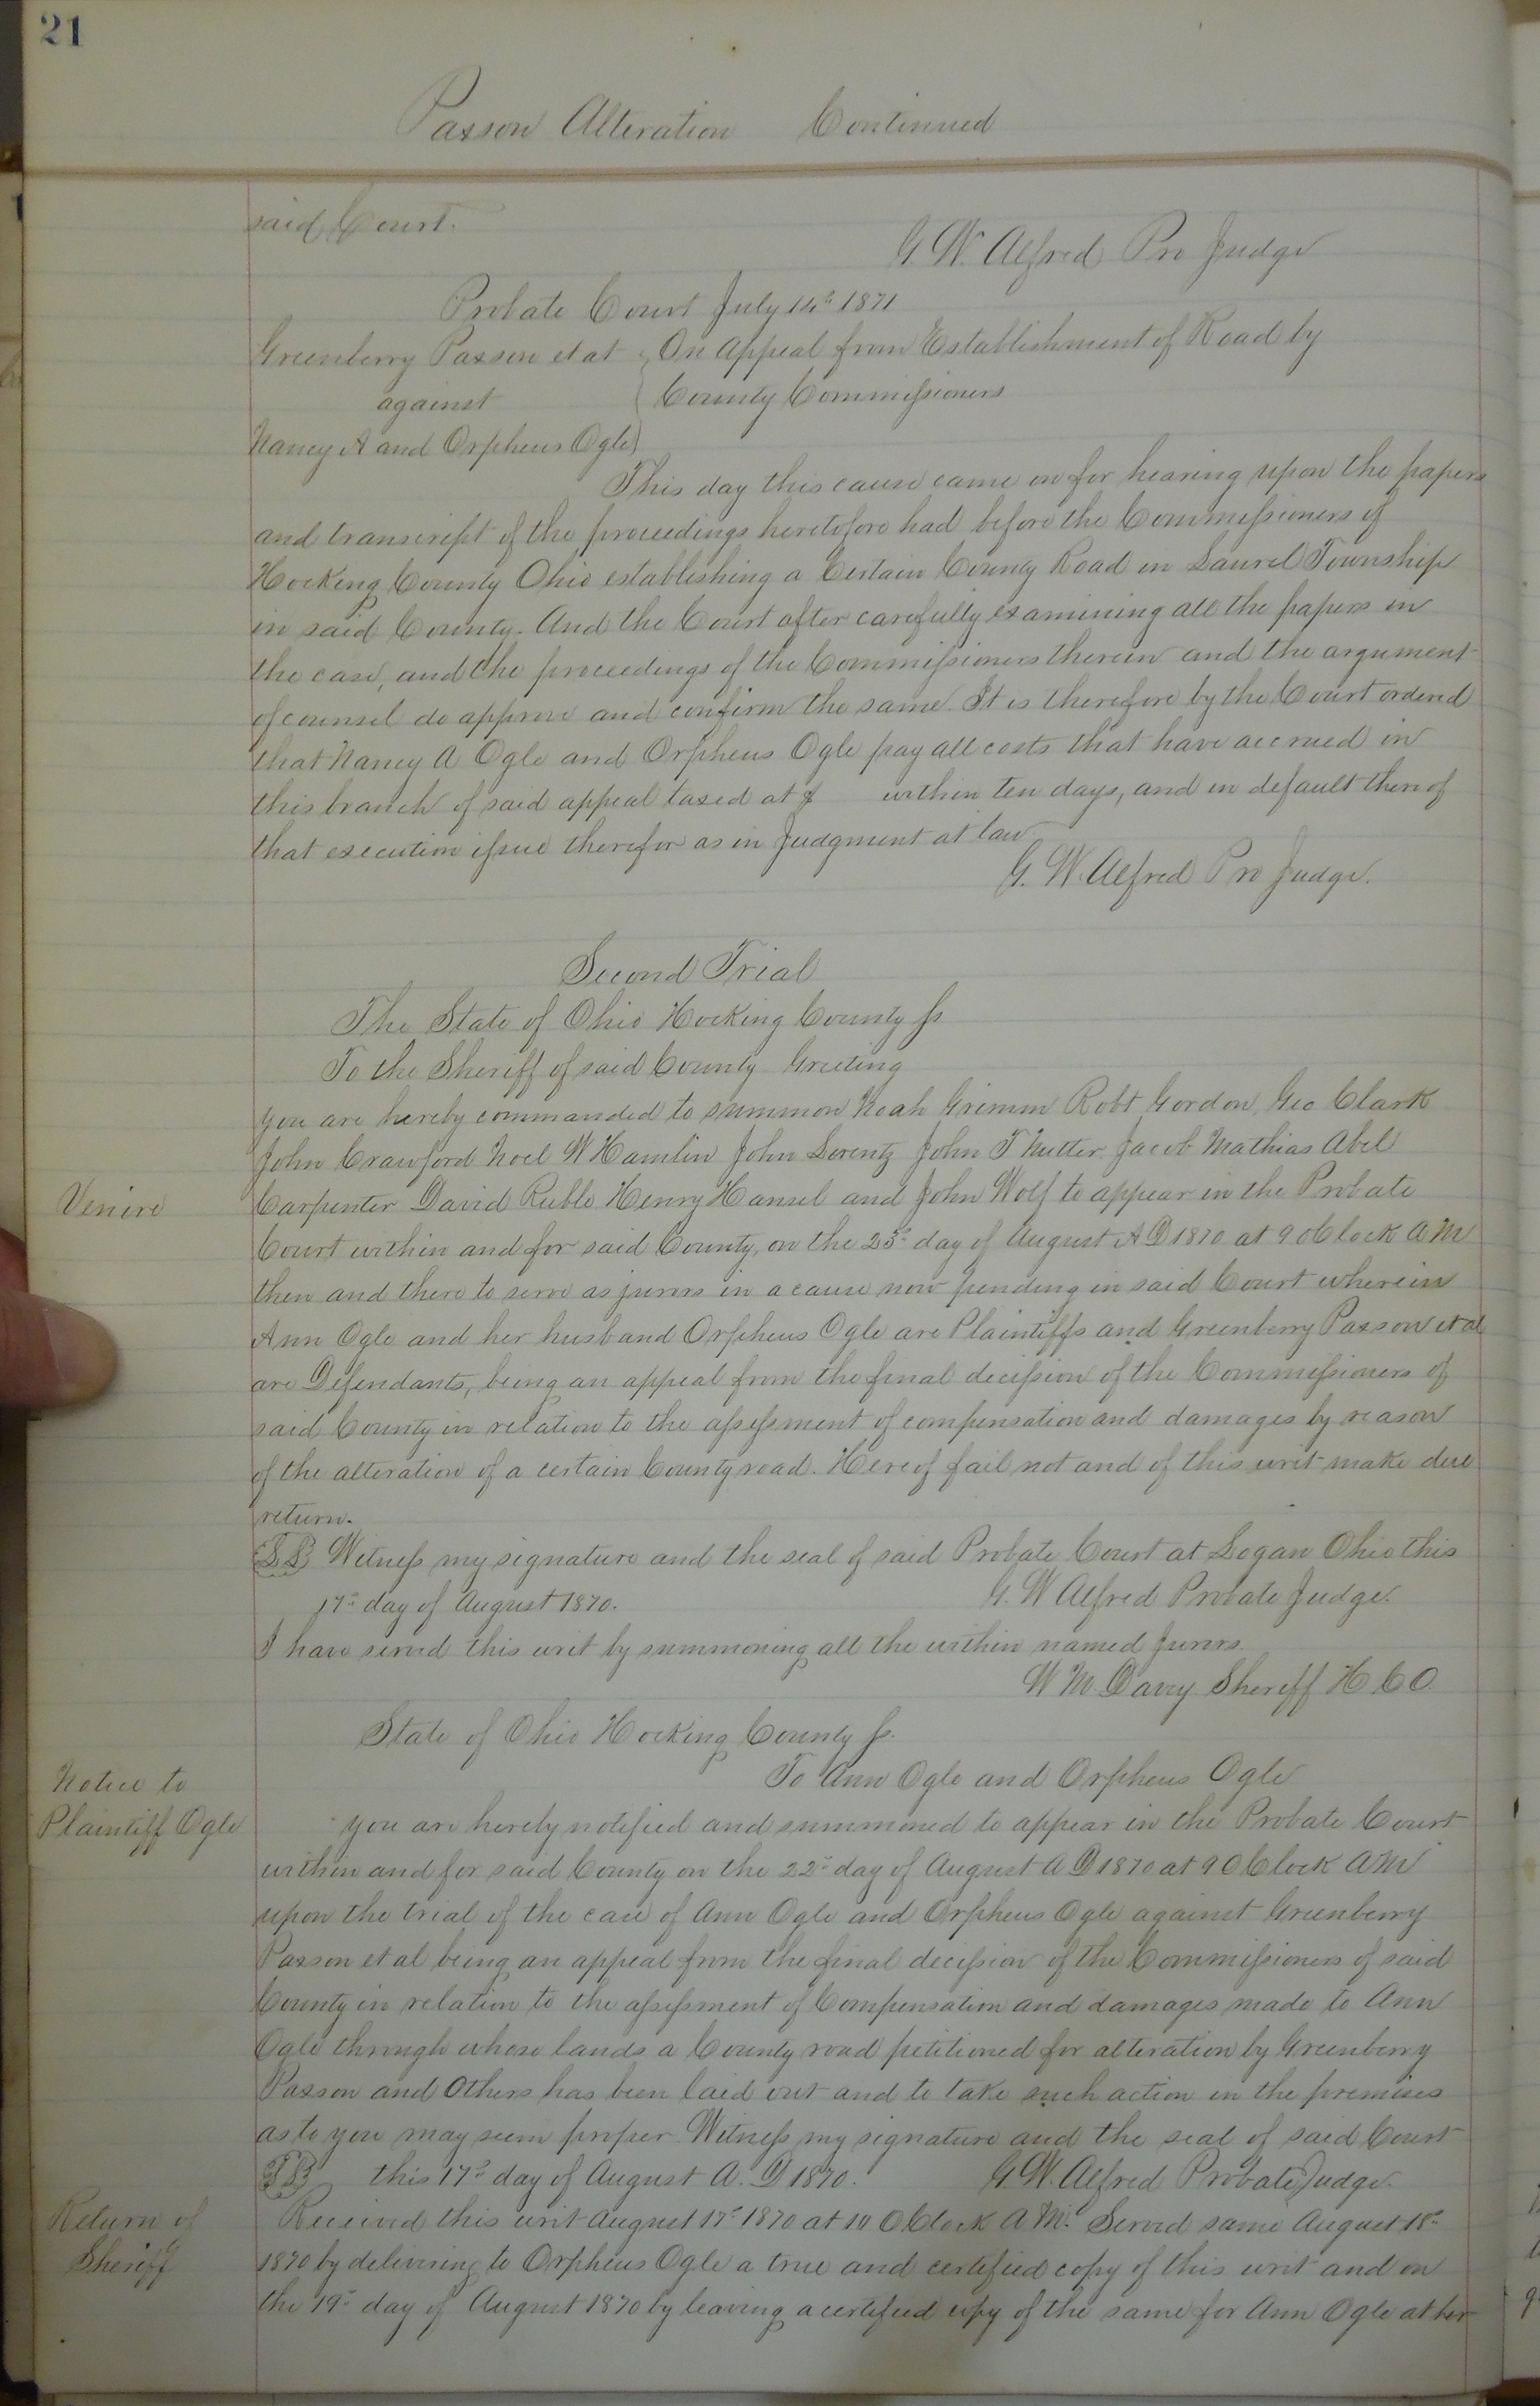 21
Paxson Alteration Continued
said Court.
G. W. Alfred Pro Judge
Probate Court July 14th 1871
Greenberry Paxson et al } On Appeal from Establishment of Road by
against } County Commissioners
Nancy A and Orpheus Ogle }
This day this cause came on for hearing upon the papers
and transcript of the proceedings heretofore had before the Commissioners of
Hocking County Ohio establishing a Certain County Road in Laurel Township
in said County. And the Court after carefully examining all the papers in
the case, and the proceedings of the Commissioners therein and the argument
of counsel do approve and confirm the same It is therefore by the Court ordered
that Nancy A Ogle and Orpheus Ogle pay all costs that have accrued in
this branch of said appeal taxed at $ within ten days, and in default thereof
that execution issue therefor as in Judgment at law
G. W. Alfred Pro Judge.
Second Trial
The State of Ohio Hocking County ss
To the Sheriff of said County Greeting
You are hereby commanded to summon Noah Grimm Robt Gordon, Geo Clark
John Crawford Noel W Hamlin John Lorentz John T Nutter Jacob Mathias Abel
Venire
Carpenter David Ruble Henry Hansel and John Wolf to appear in the Probate
Court within and for said County, on the day of August A D 1870 at 9 oClock A M
then and there to serve as jurors in a cause now pending in said Court wherein
Ann Ogle and her husband Orpheus Ogle are Plaintiffs and Greenberry Paxson et al
are Defendants, being an appeal from the final decission of the Commissioners of
said County in relation to the assessment of compensation and damages by reason
of the alteration of a certain County road. Hereof fail not and of this writ make due
return.
Witness my signature and the seal of said Probate Court at Logan Ohio this
17th day of August 1870. G. W Alfred Probate Judge.
I have served this writ by summoning all the within named Jurors.
W M Davey Sheriff H C O.
State of Ohio Hocking County ss.
To Ann Ogle and Orpheus Ogle
Notice to
Plaintiff Ogle
You are hereby notified and summoned to appear in the Probate Court
within and for said County on the 22d day of August A D 1870 at 9 OClock AM
upon the trial of the case of Ann Ogle and Orpheus Ogle against Greenberry
Paxson et al being an appeal from the final decission of the Commissioners of said
County in relation to the assessment of Compensation and damages made to Ann
Ogle through whose lands a County road petitioned for alteration by Greenberry
Paxson and Others has been laid out and to take such action in the premises
as to you may seem proper. Witness my signature and the seal of said Court
this 17th day of August A. D 1870. G. W. Alfred Probate Judge.
Return of
Sheriff
Received this writ August 17th 1870 at 10 OClock A M. Served same August 18th
1870 by delivering to Orpheus Ogle a true and certified copy of this writ and on
the 19th day of August 1870 by leaving a certified copy of the same for Ann Ogle at her